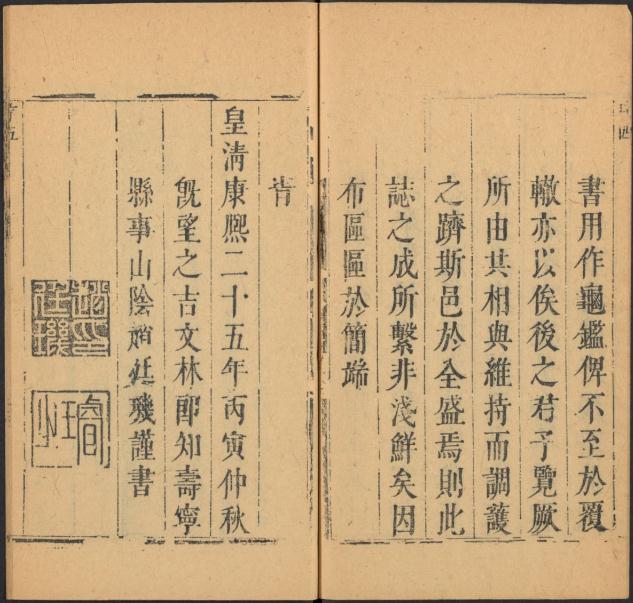 書用作龜鑑俾不至於覆
轍亦以俟後之君子覽厥
所由共相與維持而調護
之躋斯邑於全盛焉則此
誌之成所繫非淺鮮矣因
布區區於簡端
旹
皇淸康熙二十五年丙寅仲秋
旣望之吉文林郎知壽寧
縣事山陰趙廷璣謹書
趙印廷璣